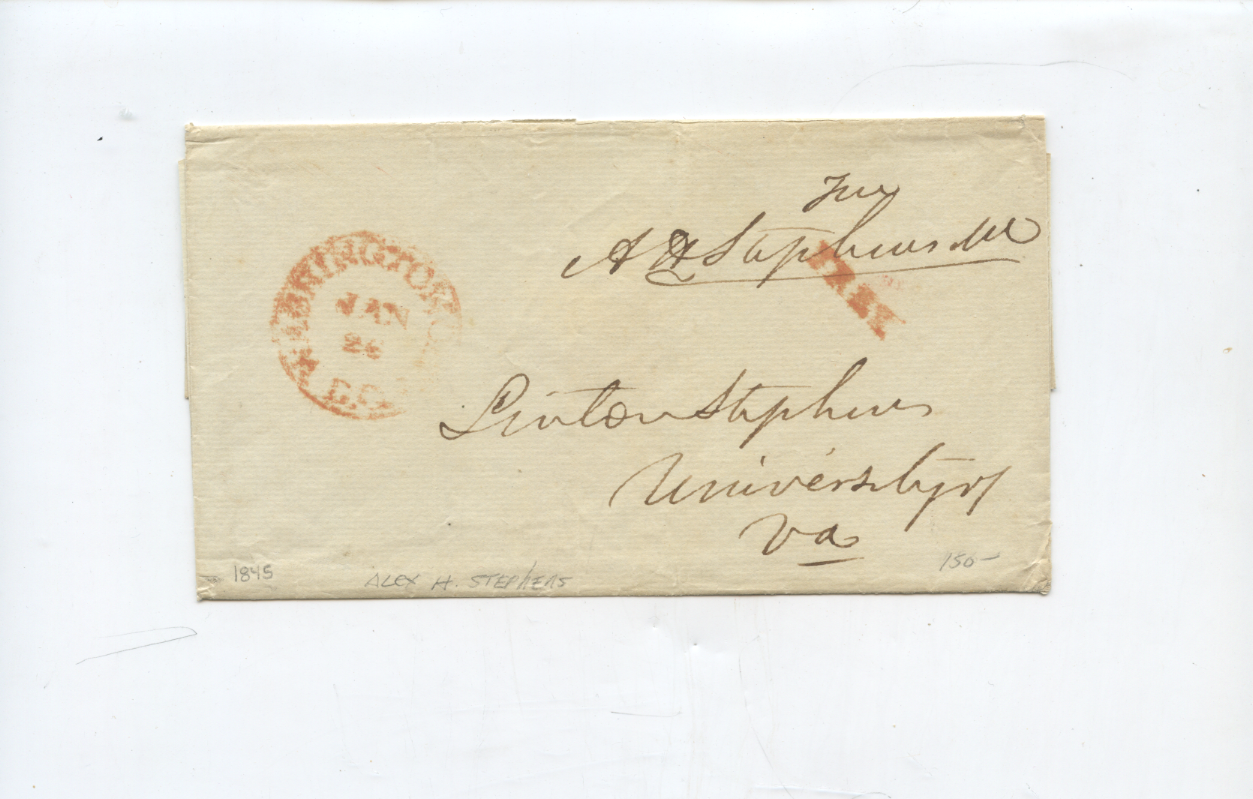 Free
A H Stephens MC
FREE
WASHINGTON
JAN
26
D.C.
Linton Stephens
University of
Va
1845
ALEX H. STEPHENS
150-